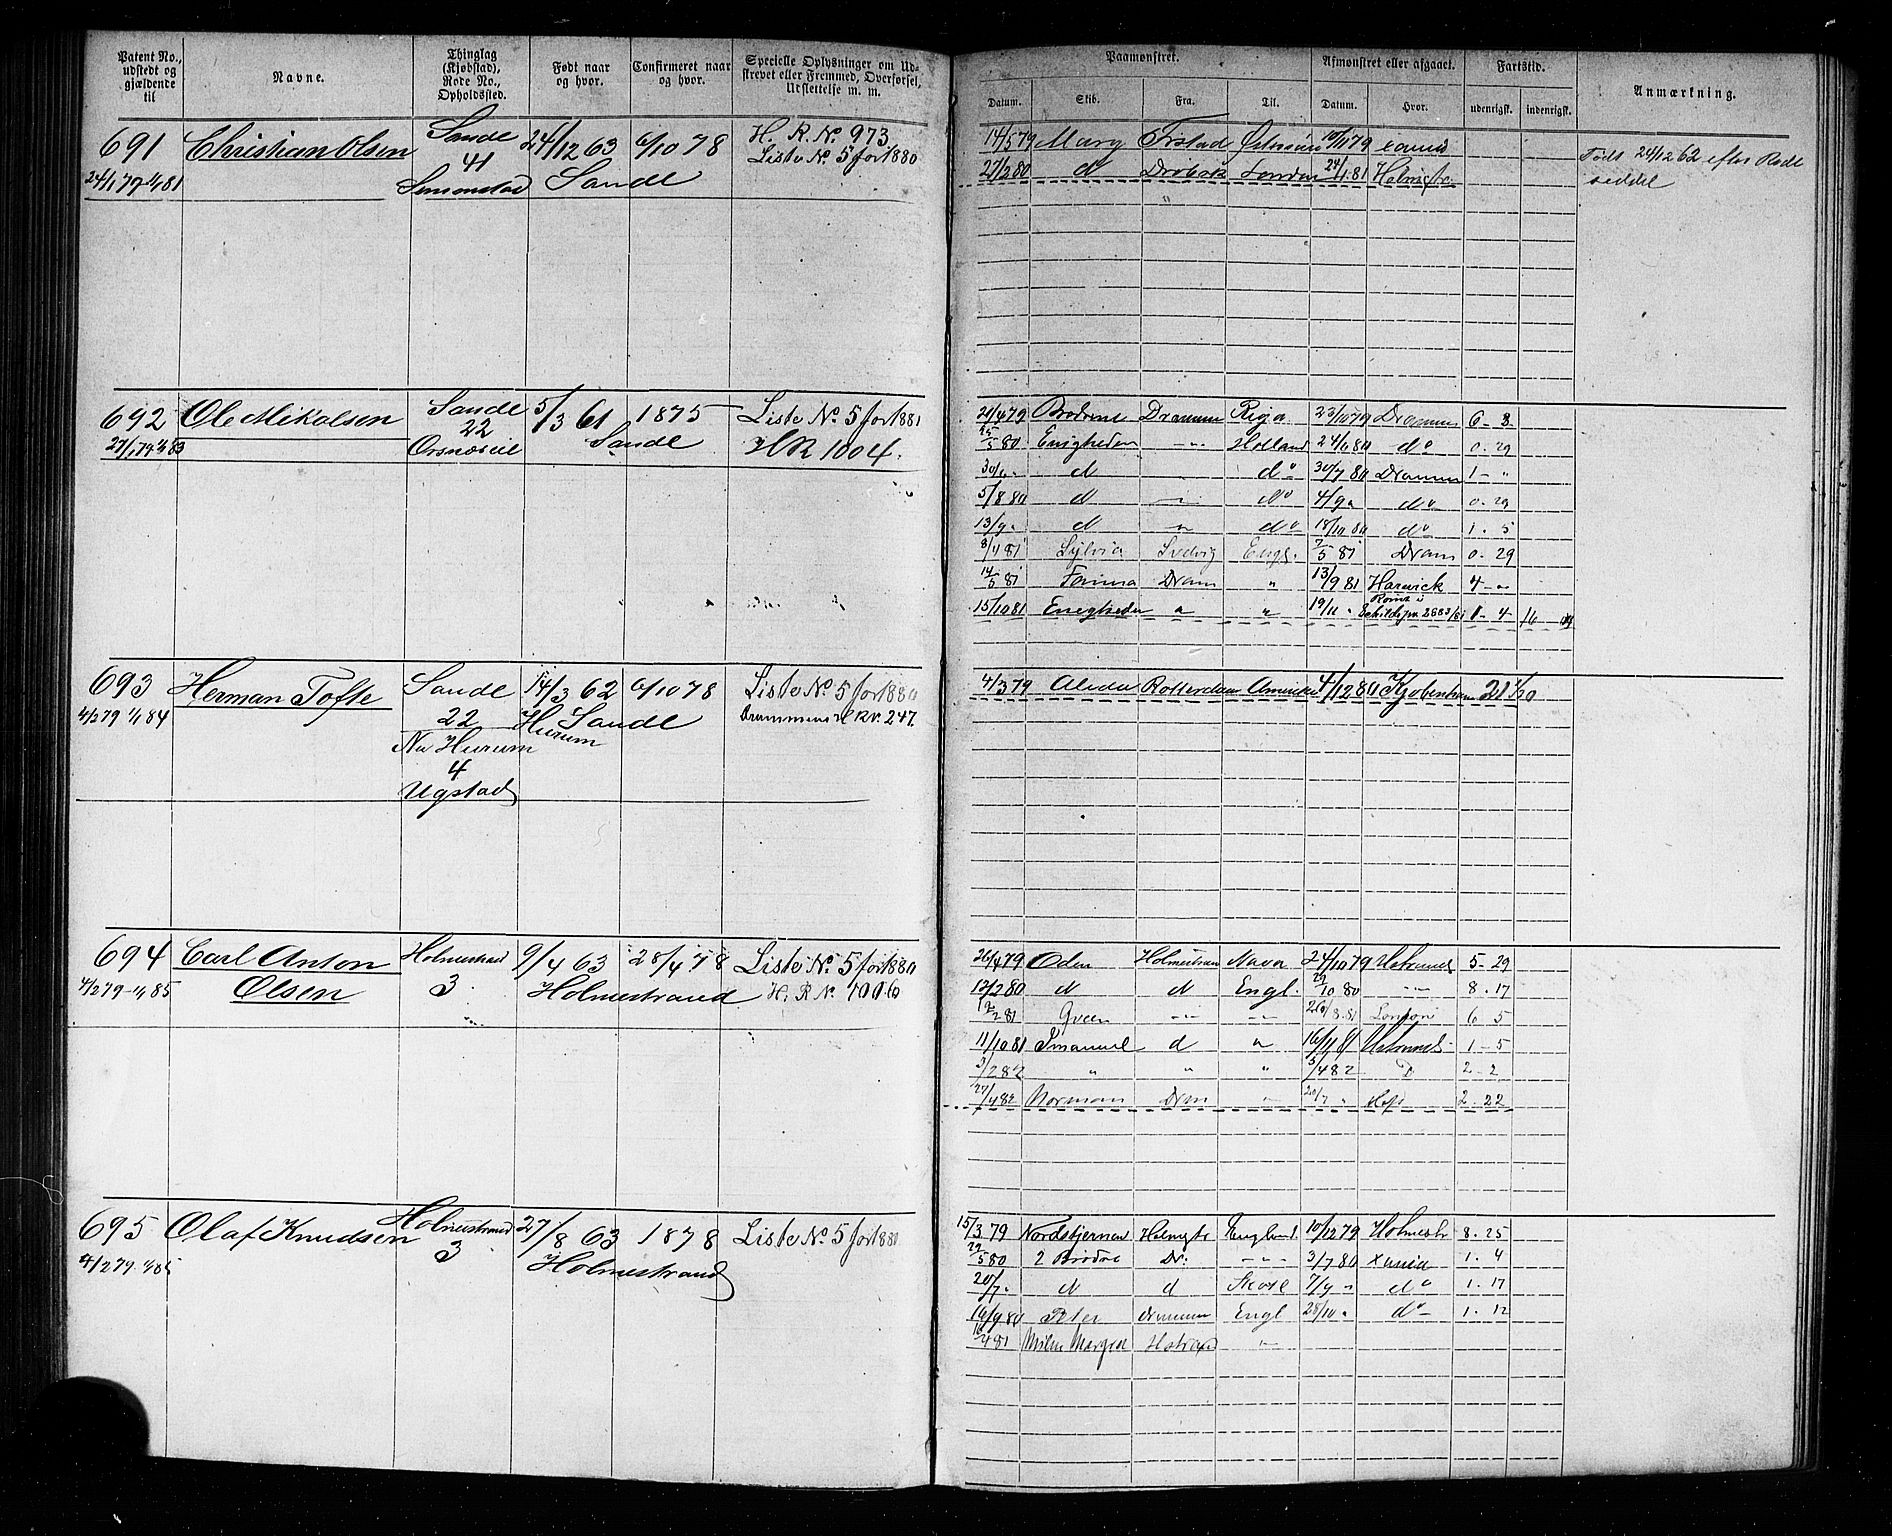 Patent No., udstedt og gjældende til
Navne.
Thinglag (Kjøbstad), Rode No., Opholdssted.
Født naar og hvor.
Confirmeret naar og hvor.
Specielle Oplysninger om Udskrevet eller Fremmed, Overførsel, Udslettelse m. m.
Paamønstret.
Afmønstret eller afgaaet.
Fartstid.
Anmærkning.
Datum. Skib. Fra. Til. Datum. Hvor. udenrigsk. indenrigsk.
691 Christian Olsen Sande 24/12 63 6/10 78 H. R. No. 973
41 Liste No. 5 for 1880
24/1 79 1/1 81 Sande
14/5 79 Mary 10/11 79
27/2 80 d Drøbak London 24/1 81 Holmstr.
Født 24/12 62 efter Rode
seddel
692 Ole Mikalsen Sande 5/3 61 1875 Liste No. 5 for 1881
22 Sande HR 1004.
27/1 79
21/4 79 Brødrene Drammen Riga 23/10 79 Drammen 6 - 3
25/5 80 Enigheden - " - Holland 24/6 80 do 0 - 29
30/6 " d do 30/7 80 Drammen 1 - "
5/8 80 d - " - do 4/9 " do 0 - 29
13/9 " d " do 18/10 80 do 1 - 5
8/4 81 Sylvia Svelvig Engl. 7/5 81 Dram 0 - 29
14/5 81 Dram " 13/9 81 Harwick 4 - "
15/10 81 Enigheden " " 19/11 " 1 - 4
693 Herman Tofte Sande 14/3 62 6/10 78 Liste No. 5 for 1880
4/2 79 1/1 84 22 Hurum Sande Drammens H R Nr. 247.
Nu Hurum
4
Ugstad
4/3 79 Alida Rotterdam Amerika 4/12 80 Kjøbenhavn 21 1/20
694 Carl Anton Holmestrand 9/4 63 28/4 78 Liste No. 5 for 1880
Olsen 3 Holmestrand H. R. No. 1006
4/2 79 - 1/1 85
26/4 79 Oden Holmestran 24/10 79 5 - 29
12/2 80 d d Engl. 29/10 80 - " - 8 . 17
12/2 81 Qveen - " - - " - 26/8 81 London 6 5
11/10 81 Imanuel d " 16/11 81 1 - 5
3/2 82 " " " 5/4 82 D 2 - 2
27/4 82 Norman Drm " 20/7 " 2 . 22
695 Olaf Knudsen Holmestrand 27/8 63 1878 Liste No. 5 for 1880
4/2 79 - 1/1 85 3 Holmestrand
15/3 79 Nordstjernen Holmstr England 10/12 79 Holmestr 8 . 25
29/5 80 2 Brødre Dr. - " - 3/7 80 Xania 1 . 4
20/7 " d d 7/9 " do 1 . 17
16/9 80 Peter Drammen Engl 28/10 " do 1 . 12